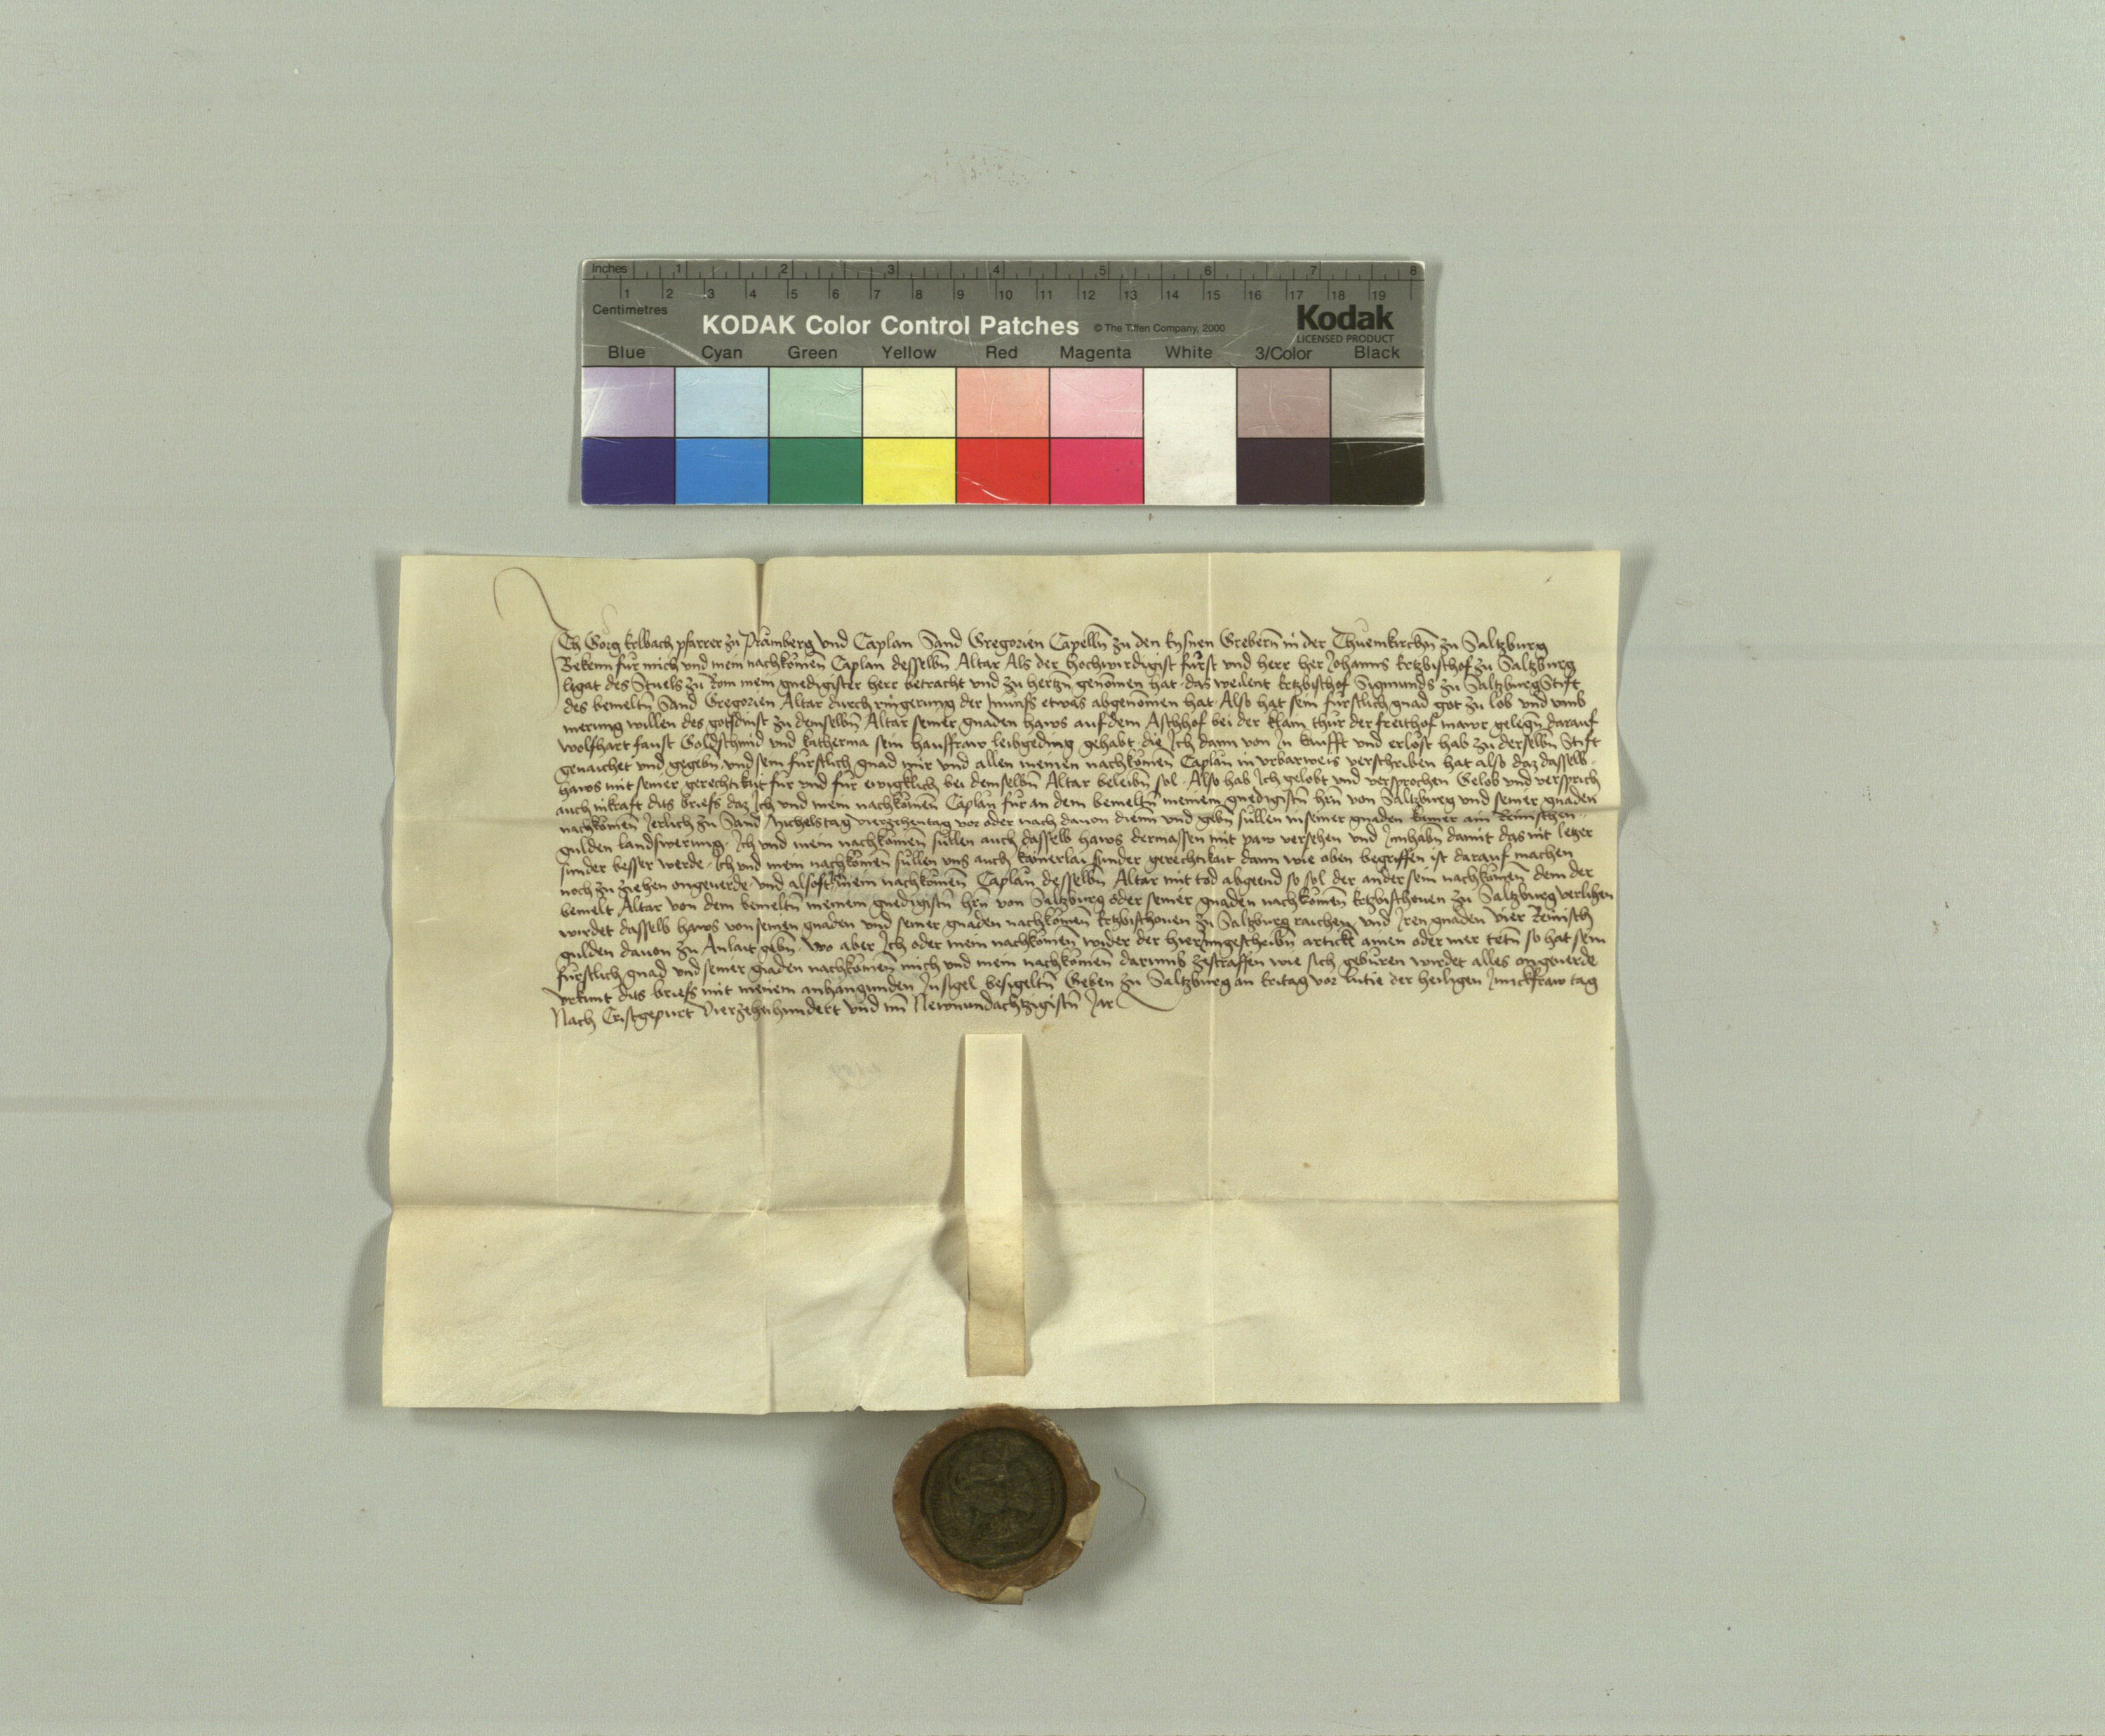 Inches 1 2 3 4 5 6 7 8
1 2 3 4 5 6 7 8 9 10 11 12 13 14 15 16 17 18 19
Centimetres
KODAK Color Control Patches © The Tiffen Company, 2000 Kodak
LICENSED PRODUCT
Blue Cyan Green Yellow Red Magenta White 3/Color Black
Ich Gorg Erlbach pfarrer zu Pramberg vnd Caplan Sand Gregorien Capelln̄ zu den Greberñ in der Thuemkirchn̄ zu Saltzburg
Bekenn für mich vnd mein nachkömen̄ Caplan desselbn̄ Altar Als der hochwirdigist fürst vnd herr her Johanns Ertzbischof zu Saltzburg
legat des Stuels zu Rom mein gnedigister herr betracht vnd zu hertzn̄ genomen hat das weilent Ertzbischof Sigmunds zu Saltzburg Stift
des bemeltn̄ Sand Gregorien Altar durch ringerung der Münss etwas abgenomen hat Also hat sein fürstlich gnad got zu lob vnd vmb
merung willen des gotsdinst zu demselbn̄ Altar seiner gnaden haws auf dem Aschhof bei der klain thür der freithof mawr gelegn̄ darauf
Wolfhart faust Goldschmid vnd Katherina sein hausfraw leibgeding gehabt die Ich dann von In kaufft vnd erlöst hab zu derselbn̄ Stift
geaichet vnd gegebn̄ vnd sein fürstlich gnad mir vnd allen meinen nachkömen̄ Caplän in vrbarweis verschriben hat also daz dasselb
haws mit seiner gerechtikait für vnd für ewigklich bei demselbn̄ Altar beleibn̄ sol Also hab Ich gelobt vnd versprochen Gelob vnd versprich
auch inkraft dits briefs daz Ich vnd mein nachkömen Caplän für an dem bemeltn̄ meinem gnedigistn̄ hrn̄ von Saltzburg vnd seiner gnaden
nachkömen̄ Jerlich zu Sand Michelstag vierzehentag vor oder nach dauon dienn vnd gebn̄ süllen in seiner gnaden kamer ain Reinischen
gulden landswerung Ich vnd mein nachkömen̄ süllen auch dasselb haws dermassen mit paw versehen vnd Innhabn̄ damit das nit letzer
sunder besser werde Ich vnd mein nachkömen̄ süllen vns auch kainerlai sunder gerechtikait dann wie oben begriffen ist darauf machen
noch zu ziehen ongeuerde vnd alsoft mein nachkömen̄ Caplän desselbn̄ Altar mit tod abgeend so sol der ander sein nachkömen̄ dem der
bemelt Altar von dem bemeltn̄ meinem gnedigistn̄ hrn̄ von Saltzburg oder seiner gnaden nachkömen̄ Ertzbischouen zu Saltzburg verlihen
wirdet dasselb haws von seinen gnaden vnd seiner gnaden nachkömen̄ Ertzbischouen zu Saltzburg raichen vnd Iren gnaden vier Reinisch
gulden dauon zu Anlait gebn̄ Wo aber Ich oder mein nachkömen̄ wider der hierInngeschribn̄ artickl ainen oder mer tetn̄ so hat sein
fürstlich gnad vnd seiner gnaden nachkömen̄ mich vnd mein nachkömen̄ darumb zestraffen wie sich gebüren wirdet alles ongeuerde
vrkunt dits briefs mit meinem anhangunden Insigel besigeltn̄ Geben zu Saltzburg an Freitag vor Lucie der heiligen Junckfraw tag
Nach Cristgepurt Vierzehnhundert vnd im Newnundachtzigistn̄ Jar